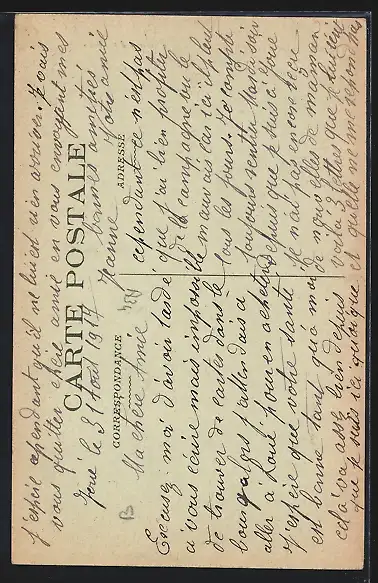 CARTE POSTALE
CORRESPONDANCE
ADRESSE
Joué le 31 Août 1917
Ma chère Amie
Excusez moi d'avoir tardé
à vous écrire mais impossible
de trouver de cartes dans le
bourg alors j'attendais à
aller à Joué pour en acheter
J'espère que votre santé
est bonne tant qu'à moi
cela va assez bien depuis
que je suis ici quoique
cependant ce n'est pas
que j'ai bien profité
de la campagne vu le
mauvais temps car ici il pleut
tous les jours. Je compte
toujours rentrer Mardi sur
depuis que je suis à Joué
Je n'ai pas encore reçu
de nouvelles de maman
voilà 3 lettres que je lui écris
et qu'elle ne me répond pas
j'espère cependant qu'il ne lui est rien arriver. Je vous
vous quitter chère amie en vous envoyant mes
bonnes amitiés
Votre amie
Jeanne
B